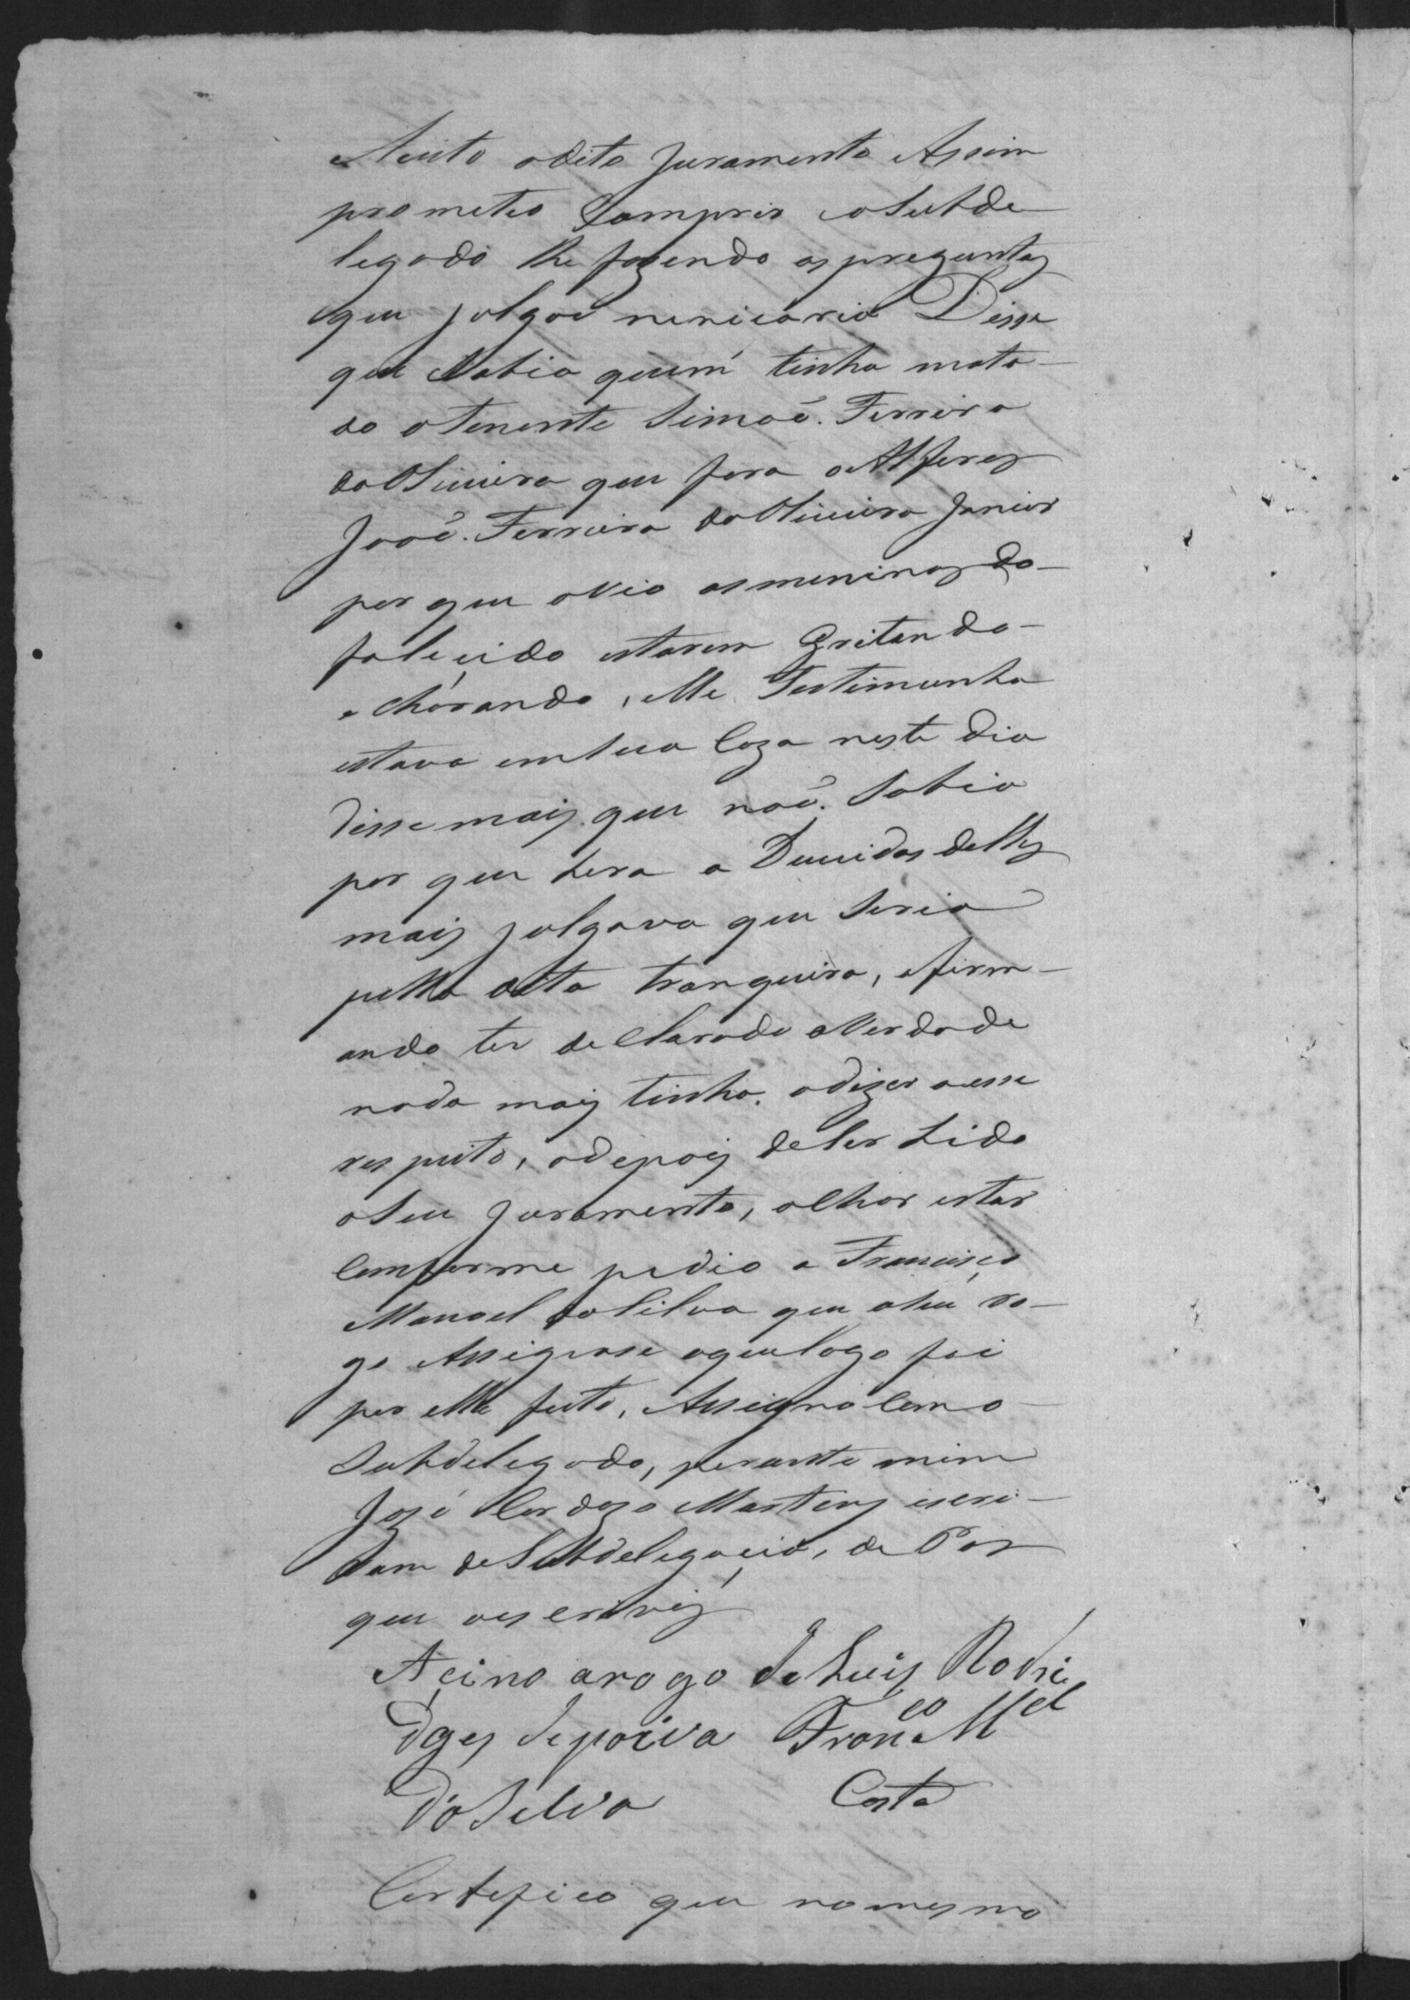 Aceito o dito Juramento Assim
prometeo Comprir e o Subde
legado lhe fazendo as preguntas
que julgou nenicario Disse
que Sabia quem tinha mata-
do o Tenente Simaõ. Ferreira
da Oliveira que fora o Alferes
Joaõ. Ferreira da Oliveira Junior
por que ovio os meninos do-
falecido estarem Gritando-
e chorando, elle Testimunha
estava em sua Caza neste dia
disse mais que naõ. Sabia
por que hera a Duvidas delles
mais julgava que Seria
pella dita tranqueira, e firm-
ando ter declarado a Verdade
nada mais tinha. a dizer a esse
respeito, e depois de ler Lido
o Seu Juramento, o lhar estar
Comforme pedio a Francisco
Manoel da Silva que a seu ro-
go Assignase o que logo foi
por elle feito, Assigna Com o
Subdelegado, perante mim
José Cardozo Martins escri-
vam de Subdelegacia, de Paz
que o escrevi
Acino arogo de Luis Rodri
dges de paiva Fran.co M.el
da Silva Costa
Certefico que no mesmo